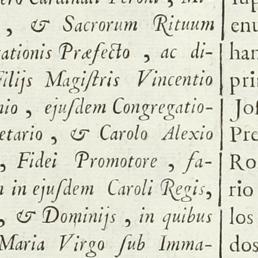 Cardinali Peroni, Mi-
, & Sacrorum Rituum
ationis Præfecto, ac di-
filijs Magiſtris Vincentio
nio, ejuſdem Congregatio-
etario, & Carolo Alexio
, Fidei Promotore, fa-
n in ejuſdem Caroli Regis,
, & Dominijs, in quibus
Maria Virgo ſub Imma-
enu
han
prin
Joſ
Pre
Ro
rio
los
dos